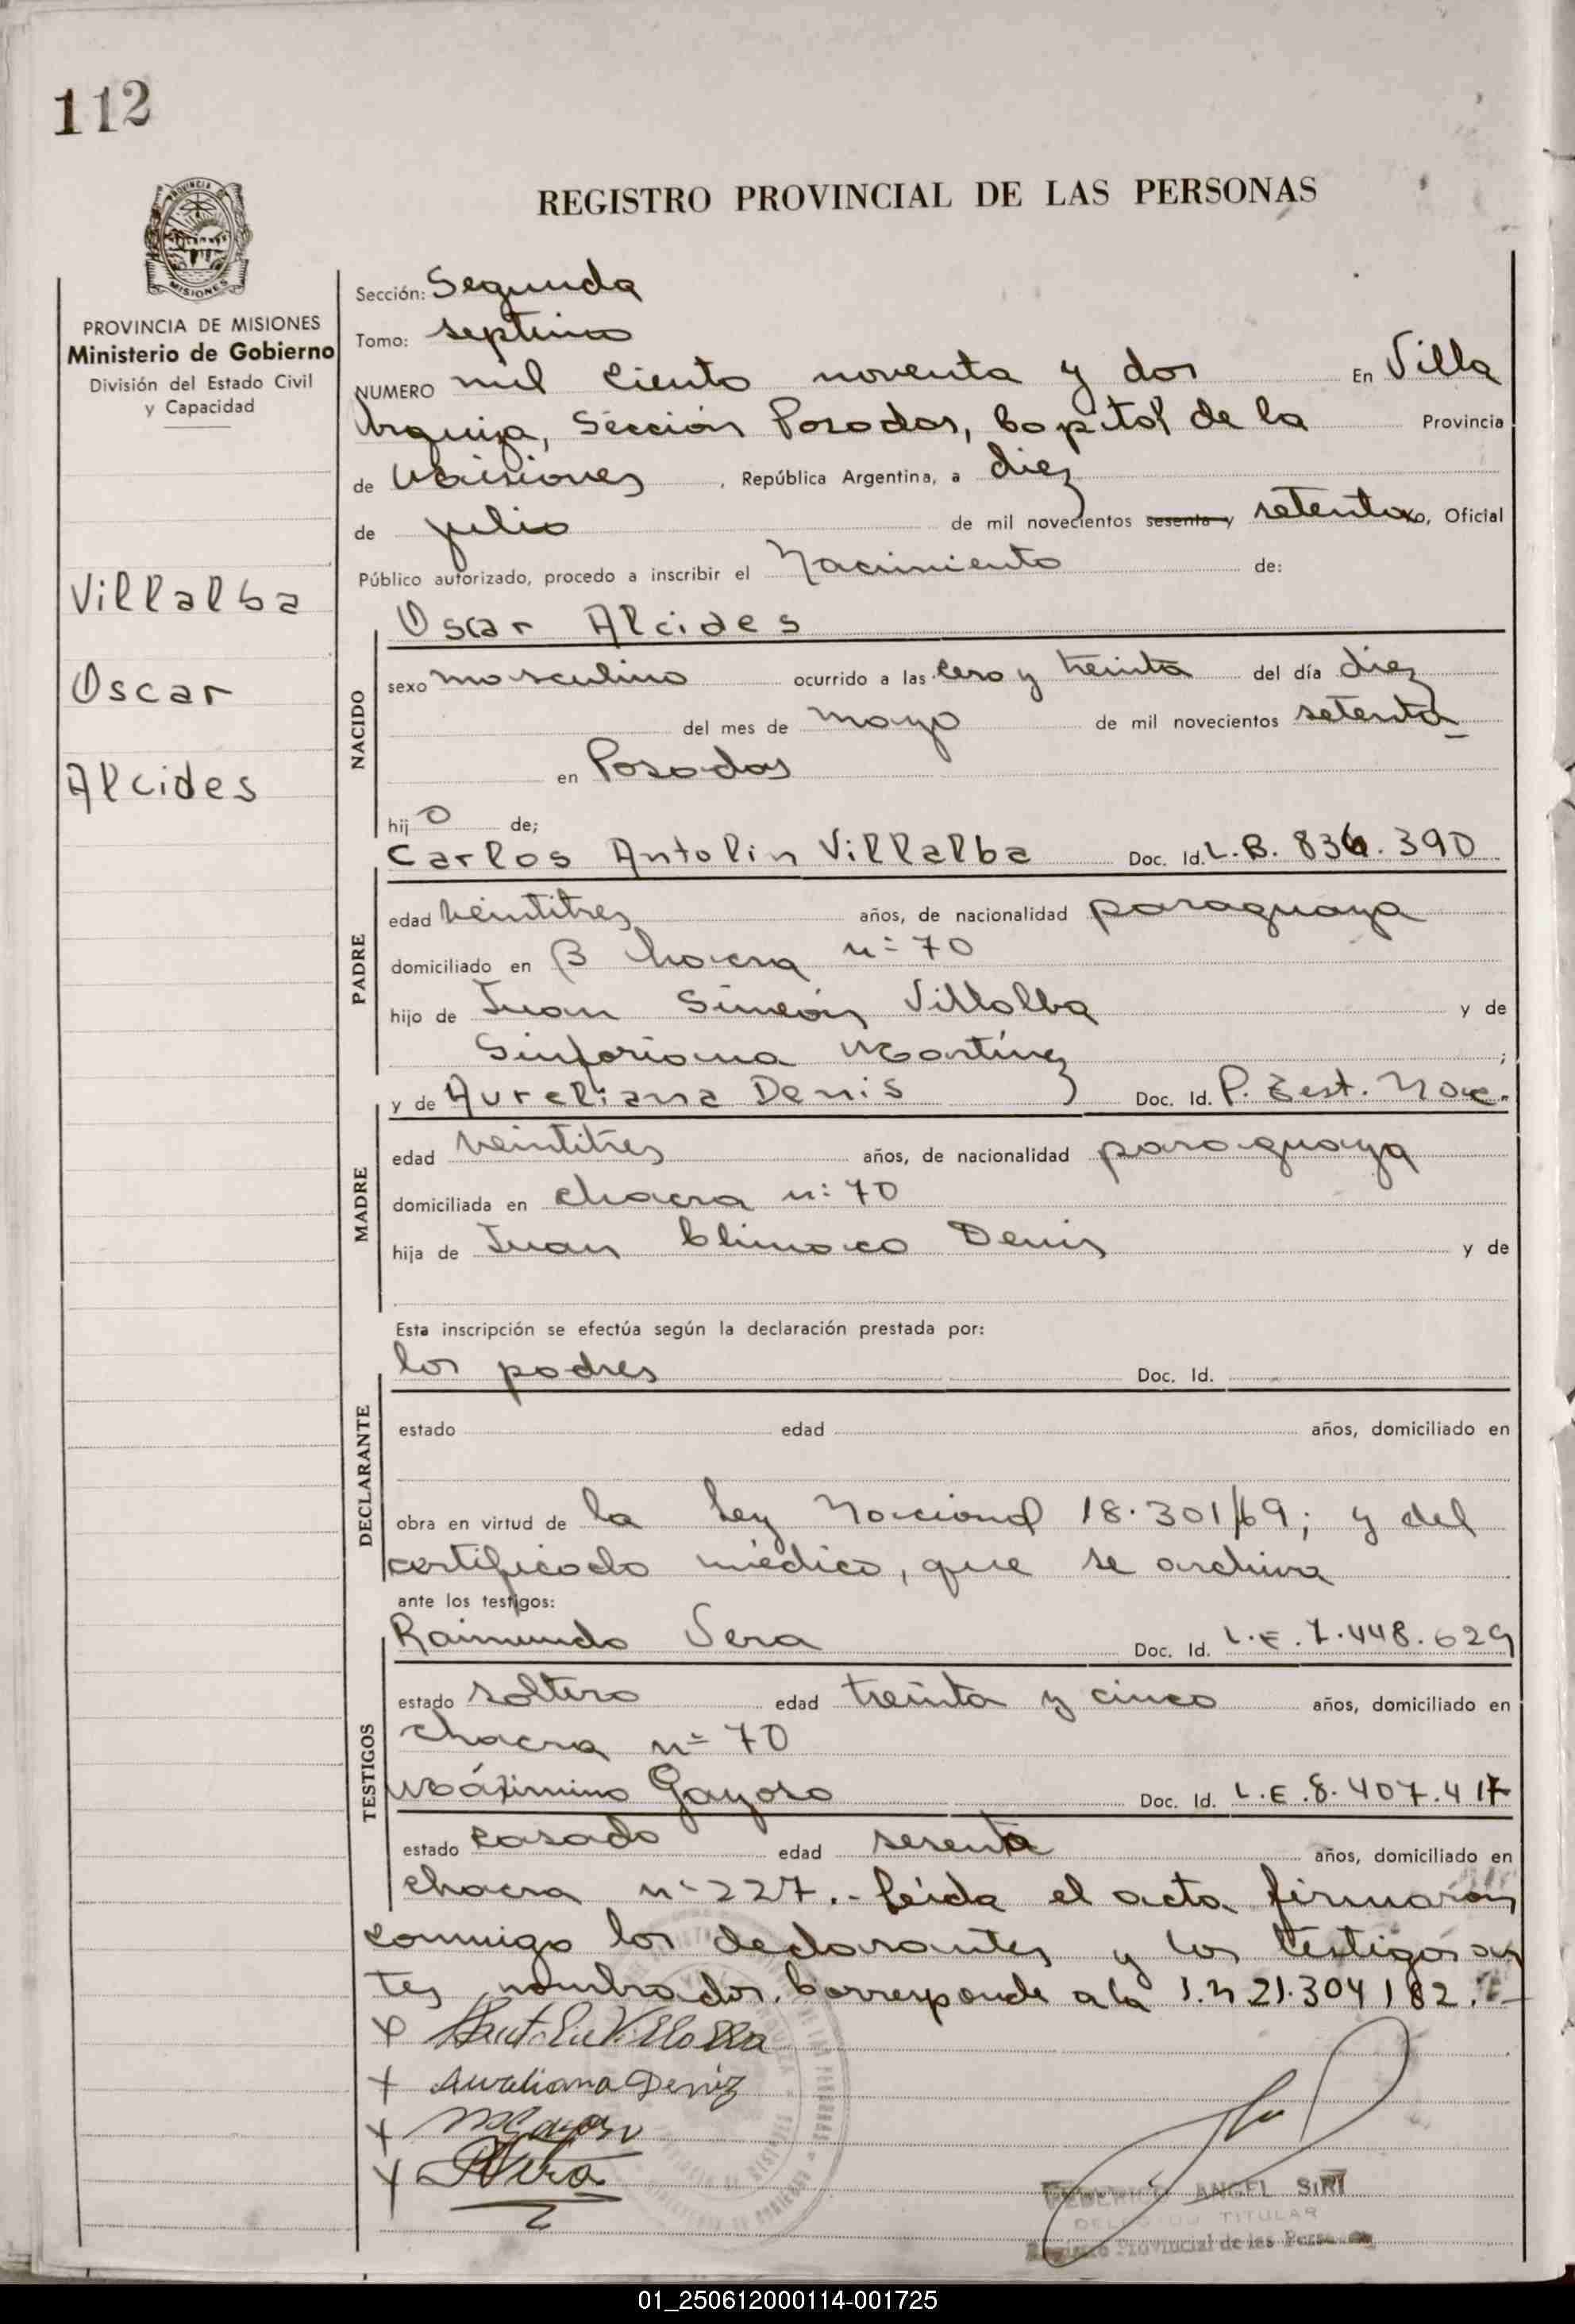 112
REGISTRO PROVINCIAL DE LAS PERSONAS
PROVINCIA DE MISIONES
MISIONES
PROVINCIA DE MISIONES
Ministerio de Gobierno
División del Estado Civil
y Capacidad
Villalba
Oscar
Alcides
Sección: Segunda
Tomo: septimo
NUMERO mil ciento noventa y dos En Villa
Urquiza, Sección Posadas, Capital de la Provincia
de Misiones, República Argentina, a diez
de julio de mil novecientos sesenta y setenta yo, Oficial
Público autorizado, procedo a inscribir el Nacimiento de:
Oscar Alcides
NACIDO
sexo masculino ocurrido a las cero y treinta del día diez
del mes de mayo de mil novecientos setenta
en Posadas
hijo de;
Carlos Antolin Villalba Doc. Id. 390
PADRE
edad veintitres años, de nacionalidad paraguaya
domiciliado en chacra n= 70
hijo de Juan Simeón Villalba y de
Sinforiana Martínez ;
y de Aureliana Denis Doc. Id. P.
MADRE
edad veintitres años, de nacionalidad paraguaya
domiciliada en chacra n: 70
hija de Juan Climaco Denis y de
Esta inscripción se efectúa según la declaración prestada por:
los padres Doc. Id.
DECLARANTE
estado edad años, domiciliado en
obra en virtud de la Ley Nacional 18.301/69; y del
certificado médico, que se archiva
ante los testigos:
TESTIGOS
Raimundo Vera Doc. Id. L.E. 7.448.629
estado soltero edad treinta y cinco años, domiciliado en
chacra n= 70
Máximino Gayoso Doc. Id. L.E. 8.407.417
estado casado edad sesenta años, domiciliado en
chacra n- 227.- Leída el acta firmaron
conmigo los declarantes y los testigos an
tes nombrados. Corresponde a la I.N 21.304.182.-
x Antolin Villalba
+ Aureliana Deniz
+ M Gayoso
x R Vera
FEDERICO ANGEL SIRI
DELEGADO TITULAR
Registro Provincial de las Personas
01_250612000114-001725